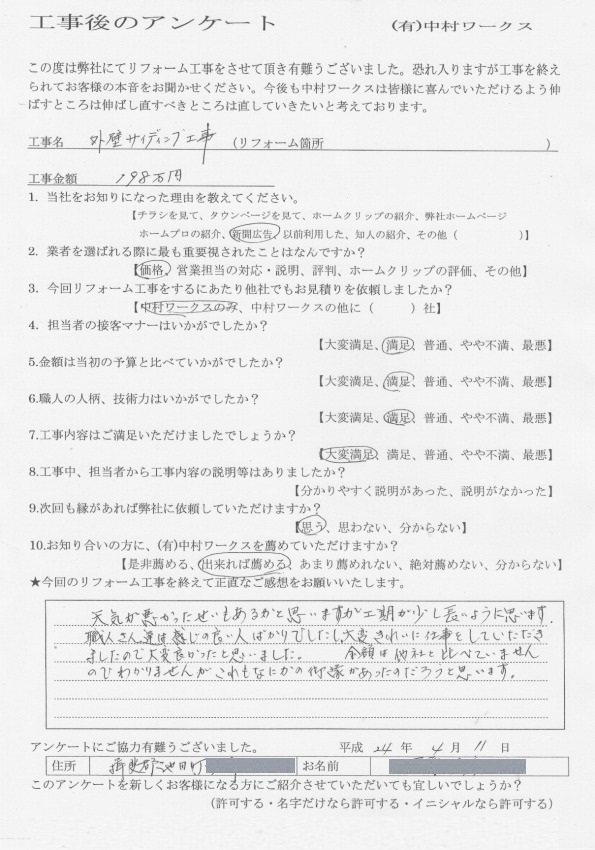 工事後のアンケート (有)中村ワークス
この度は弊社にてリフォーム工事をさせて頂き有難うございました。恐れ入りますが工事を終え
られてお客様の本音をお聞かせください。今後も中村ワークスは皆様に喜んでいただけるよう伸
ばすところは伸ばし直すべきところは直していきたいと考えております。
工事名 外壁サイディング工事 (リフォーム箇所 )
工事金額 198万円
1. 当社をお知りになった理由を教えてください。
【チラシを見て、タウンページを見て、ホームクリップの紹介、弊社ホームページ
ホームプロの紹介、新聞広告、以前利用した、知人の紹介、その他( )】
2. 業者を選ばれる際に最も重要視されたことはなんですか?
【価格、営業担当の対応・説明、評判、ホームクリップの評価、その他】
3. 今回リフォーム工事をするにあたり他社でもお見積りを依頼しましたか?
【中村ワークスのみ、中村ワークスの他に( )社】
4. 担当者の接客マナーはいかがでしたか?
【大変満足、満足、普通、やや不満、最悪】
5.金額は当初の予算と比べていかがでしたか?
【大変満足、満足、普通、やや不満、最悪】
6.職人の人柄、技術力はいかがでしたか?
【大変満足、満足、普通、やや不満、最悪】
7.工事内容はご満足いただけましたでしょうか?
【大変満足、満足、普通、やや不満、最悪】
8.工事中、担当者から工事内容の説明等はありましたか?
【分かりやすく説明があった、説明がなかった】
9.次回も縁があれば弊社に依頼していただけますか?
【思う、思わない、分からない】
10.お知り合いの方に、(有)中村ワークスを薦めていただけますか?
【是非薦める、出来れば薦める、あまり薦めれない、絶対薦めない、分からない】
★今回のリフォーム工事を終えて正直なご感想をお願いいたします。
天気が悪かったせいもあるかと思いますが工期が少し長いように思います.
職人さん達は感じの良い人ばかりでしたし、大変きれいに仕事をしていただき
ましたので大変良かったと思いました。 金額は他社と比べていません
のでわかりませんがこれもなにかの御縁があったのだろうと思います。
アンケートにご協力有難うございました。 平成 24 年 4 月 11 日
住所 揖斐郡池田町 お名前
このアンケートを新しくお客様になる方にご紹介させていただいても宜しいでしょうか?
(許可する・名字だけなら許可する・イニシャルなら許可する)